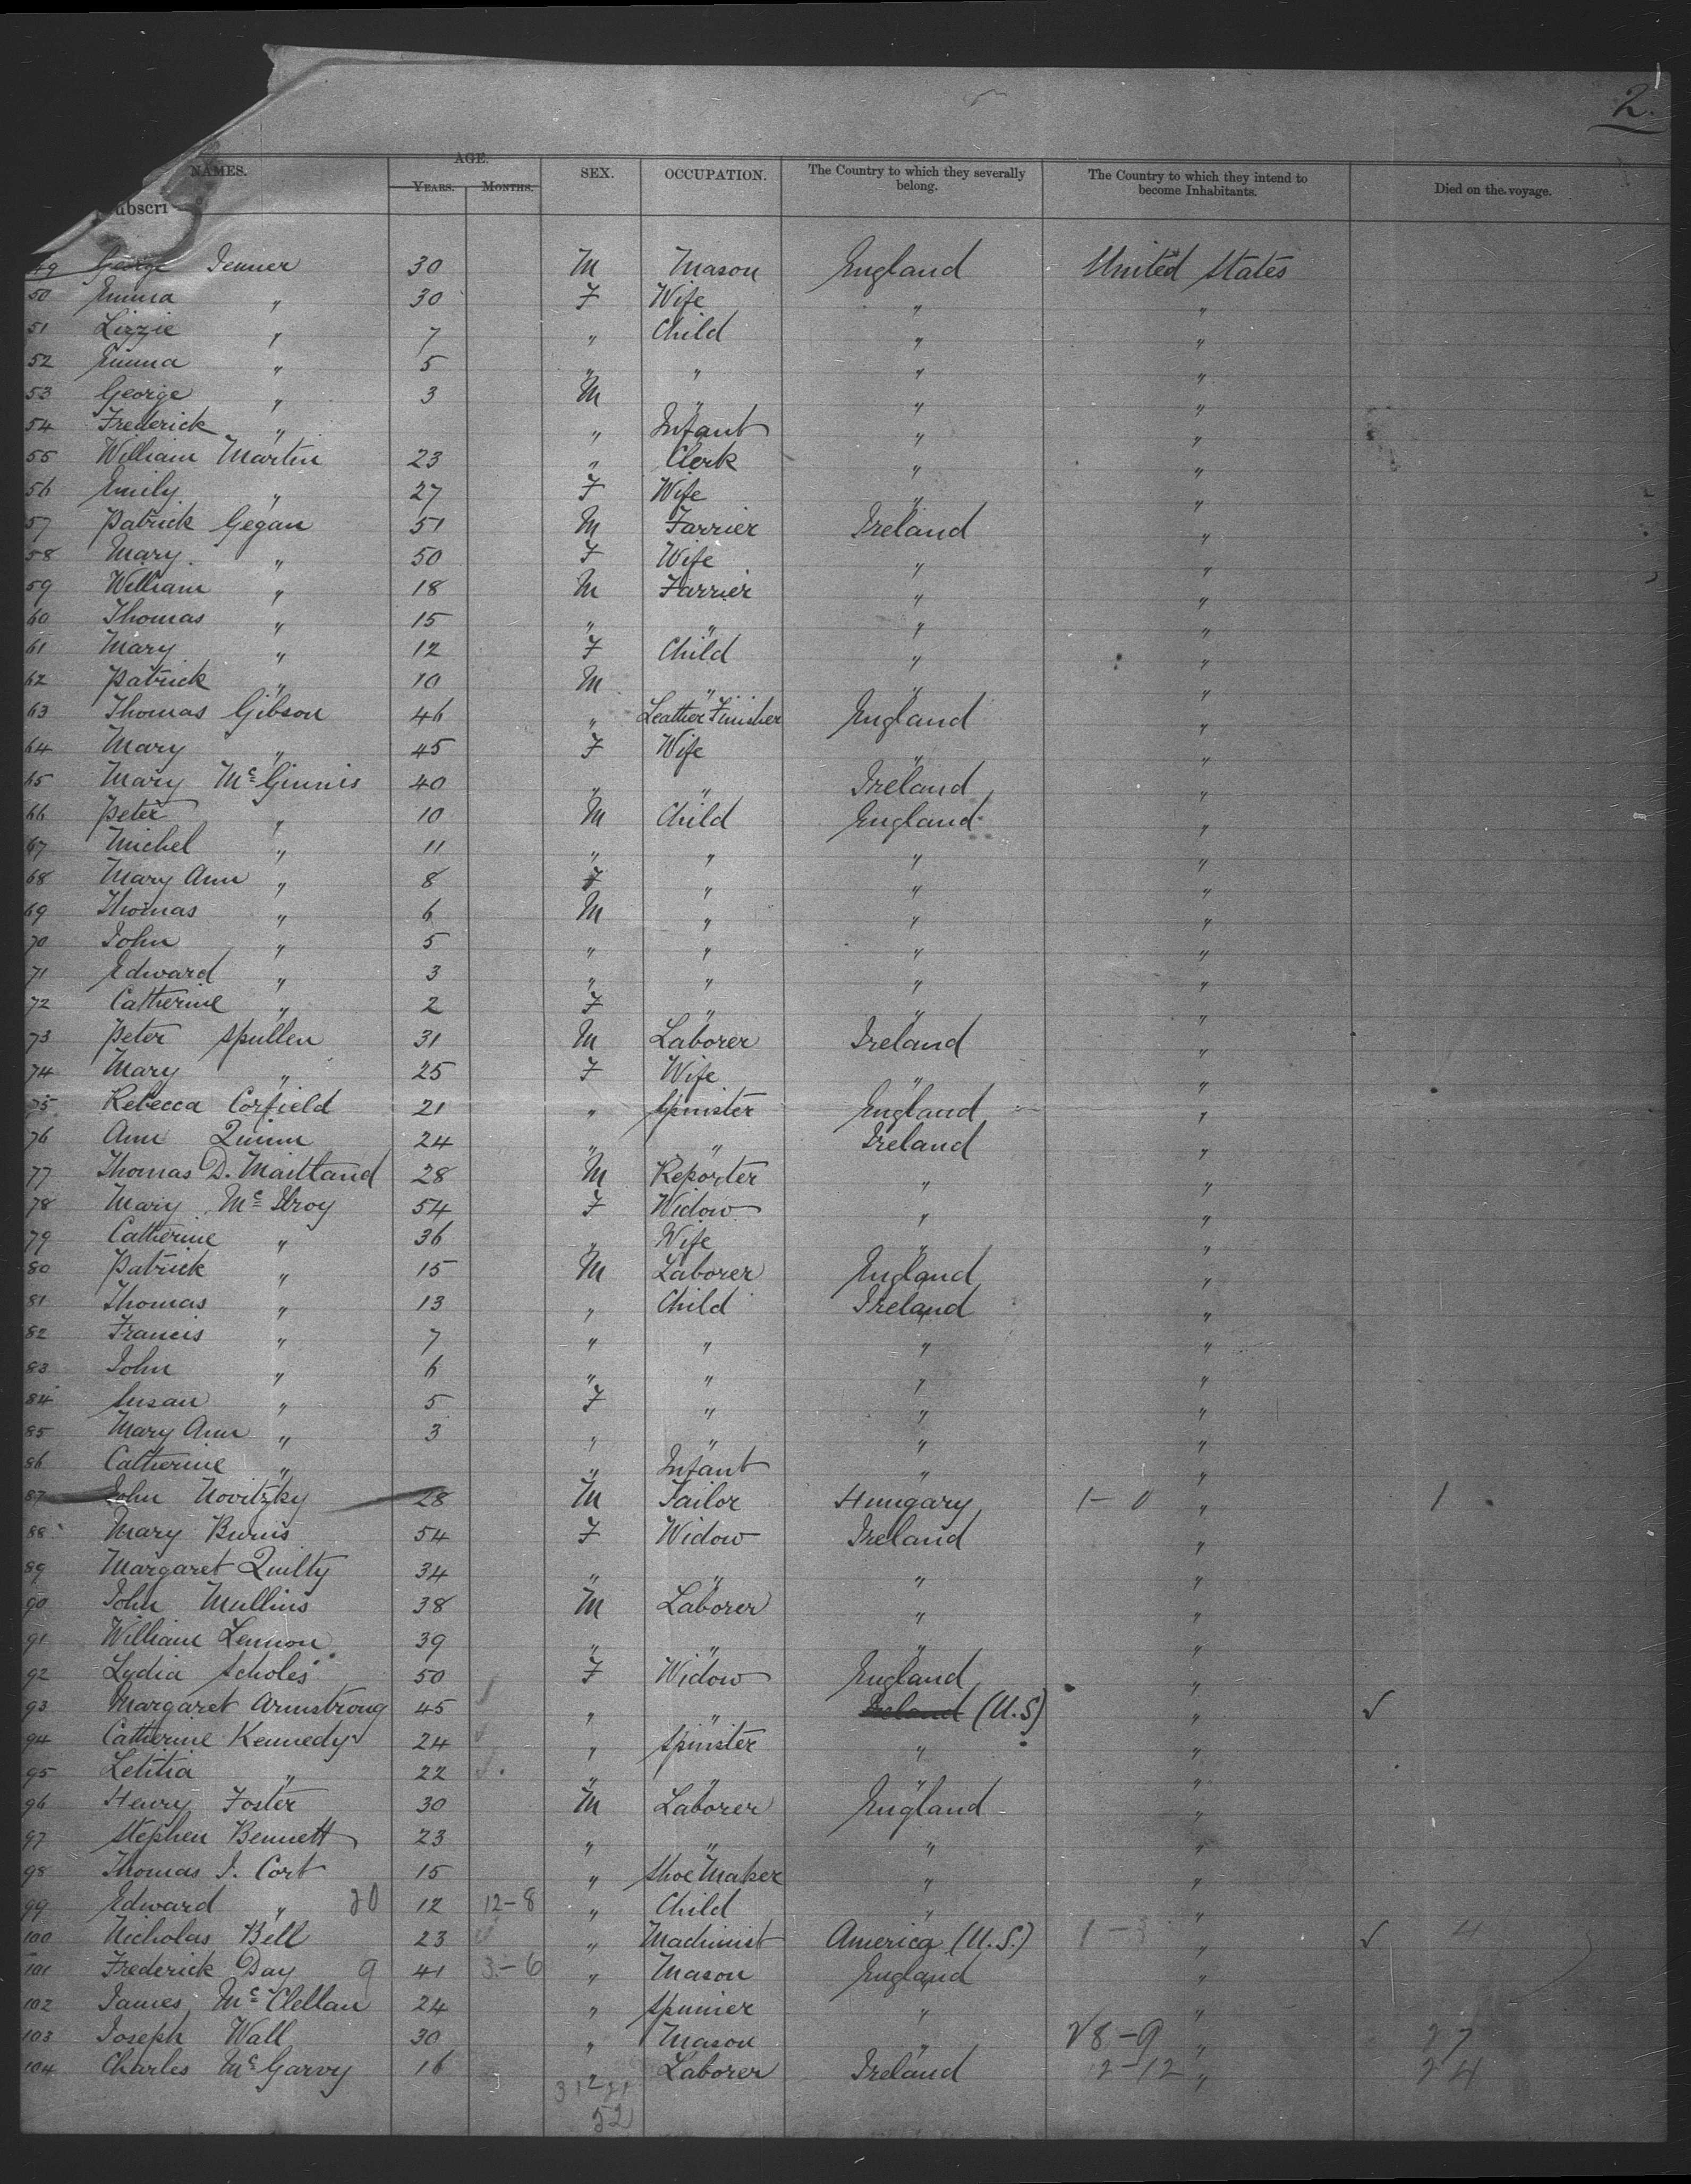 2.
NAMES. AGE. SEX. OCCUPATION. The Country to which they severally belong. The Country to which they intend to become Inhabitants. Died on the voyage.
YEARS. MONTHS.
ubscri
49 George Jenner 30 M Mason England United States
50 Emma " 30 F Wife " "
51 Lizzie " 7 " Child " "
52 Emma " 5 " " " "
53 George " 3 M " " "
54 Frederick " " Infant " "
55 William Martin 23 " Clerk " "
56 Emily " 27 F Wife " "
57 Patrick Gegan 51 M Farrier Ireland "
58 Mary " 50 F Wife " "
59 William " 18 M Farrier " "
60 Thomas " 15 " " " "
61 Mary " 12 F Child " "
62 Patrick " 10 M " " "
63 Thomas Gibson 46 " Leather Finisher England "
64 Mary " 45 F Wife " "
65 Mary McGinnis 40 " " Ireland "
66 Peter " 10 M Child England "
67 Michel " 11 " " " "
68 Mary Ann " 8 F " " "
69 Thomas " 6 M " " "
70 John " 5 " " " "
71 Edward " 3 " " " "
72 Catherine " 2 F " " "
73 Peter Spullen 31 M Laborer Ireland "
74 Mary " 25 F Wife " "
75 Rebecca Corfield 21 " Spinster England "
76 Ann Quinn 24 " " Ireland "
77 Thomas D. Maitland 28 M Reporter " "
78 Mary McIlroy 54 F Widow " "
79 Catherine " 36 " Wife " "
80 Patrick " 15 M Laborer England "
81 Thomas " 13 " Child Ireland "
82 Francis " 7 " " " "
83 John " 6 " " " "
84 Susan " 5 F " " "
85 Mary Ann " 3 " " " "
86 Catherine " " Infant " "
87 John Novitzky 28 M Tailor Hungary 1-0 " 1
88 Mary Burns 54 F Widow Ireland "
89 Margaret Quilty 34 " " " "
90 John Mullins 38 M Laborer " "
91 William Lennon 39 " " " "
92 Lydia Scholes 50 F Widow England "
93 Margaret Armstrong 45 " " Ireland (U.S) " ✓
94 Catherine Kennedy 24 " Spinster " "
95 Letitia " 22 " " " "
96 Henry Foster 30 M Laborer England "
97 Stephen Bennett 23 " " " "
98 Thomas J. Cort 15 " Shoe Maker " "
99 Edward " 20 12 12-8 " Child " "
100 Nicholas Bell 23 " Machinist America (U.S.) 1-3 " ✓ 4
101 Frederick Day 9 41 3-6 " Mason England "
102 James McClellan 24 " Spinner " "
103 Joseph Wall 30 " Mason " 28-9 " 27
104 Charles McGarvy 16 " Laborer Ireland 12-12 " 24
31 21
52